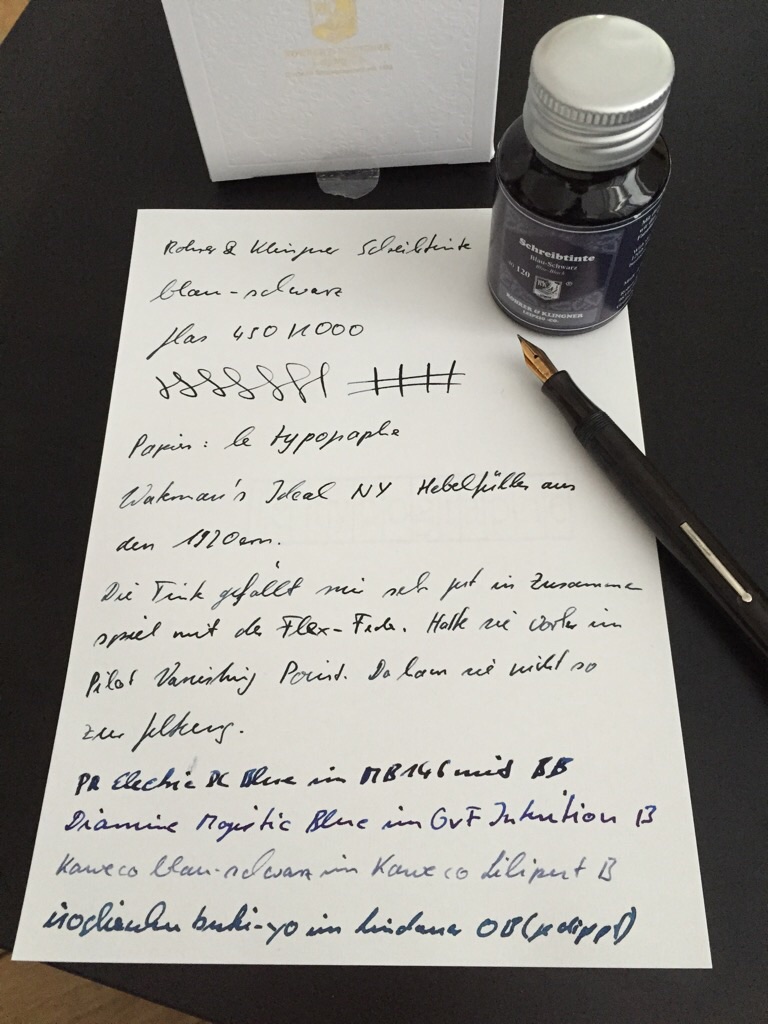 ROHRER & KLINGNER
Schreibtinte
Blau-Schwarz
Blue-Black
120
R&K
ROHRER & KLINGNER
LEIPZIG CO.
Rohrer & Klingner Schreibtinte
blau-schwarz
450 1000
Papier: le typographe
Waterman's Ideal NY Hebelfüller aus
den 1920ern.
Die Tinte gefällt mir sehr gut in Zusammen
spiel mit der Flex-Feder. Hatte sie vorher im
Pilot Vanishing Point. Da kam sie nicht so
zur Geltung.
PR Electric DC Blue im MB146 mit BB
Diamine Majestic Blue im GvF Intuition B
Kaweco blau-schwarz im Kaweco Liliput B
iroshizuku tsuki-yo im Lindauer OB (gedippt)